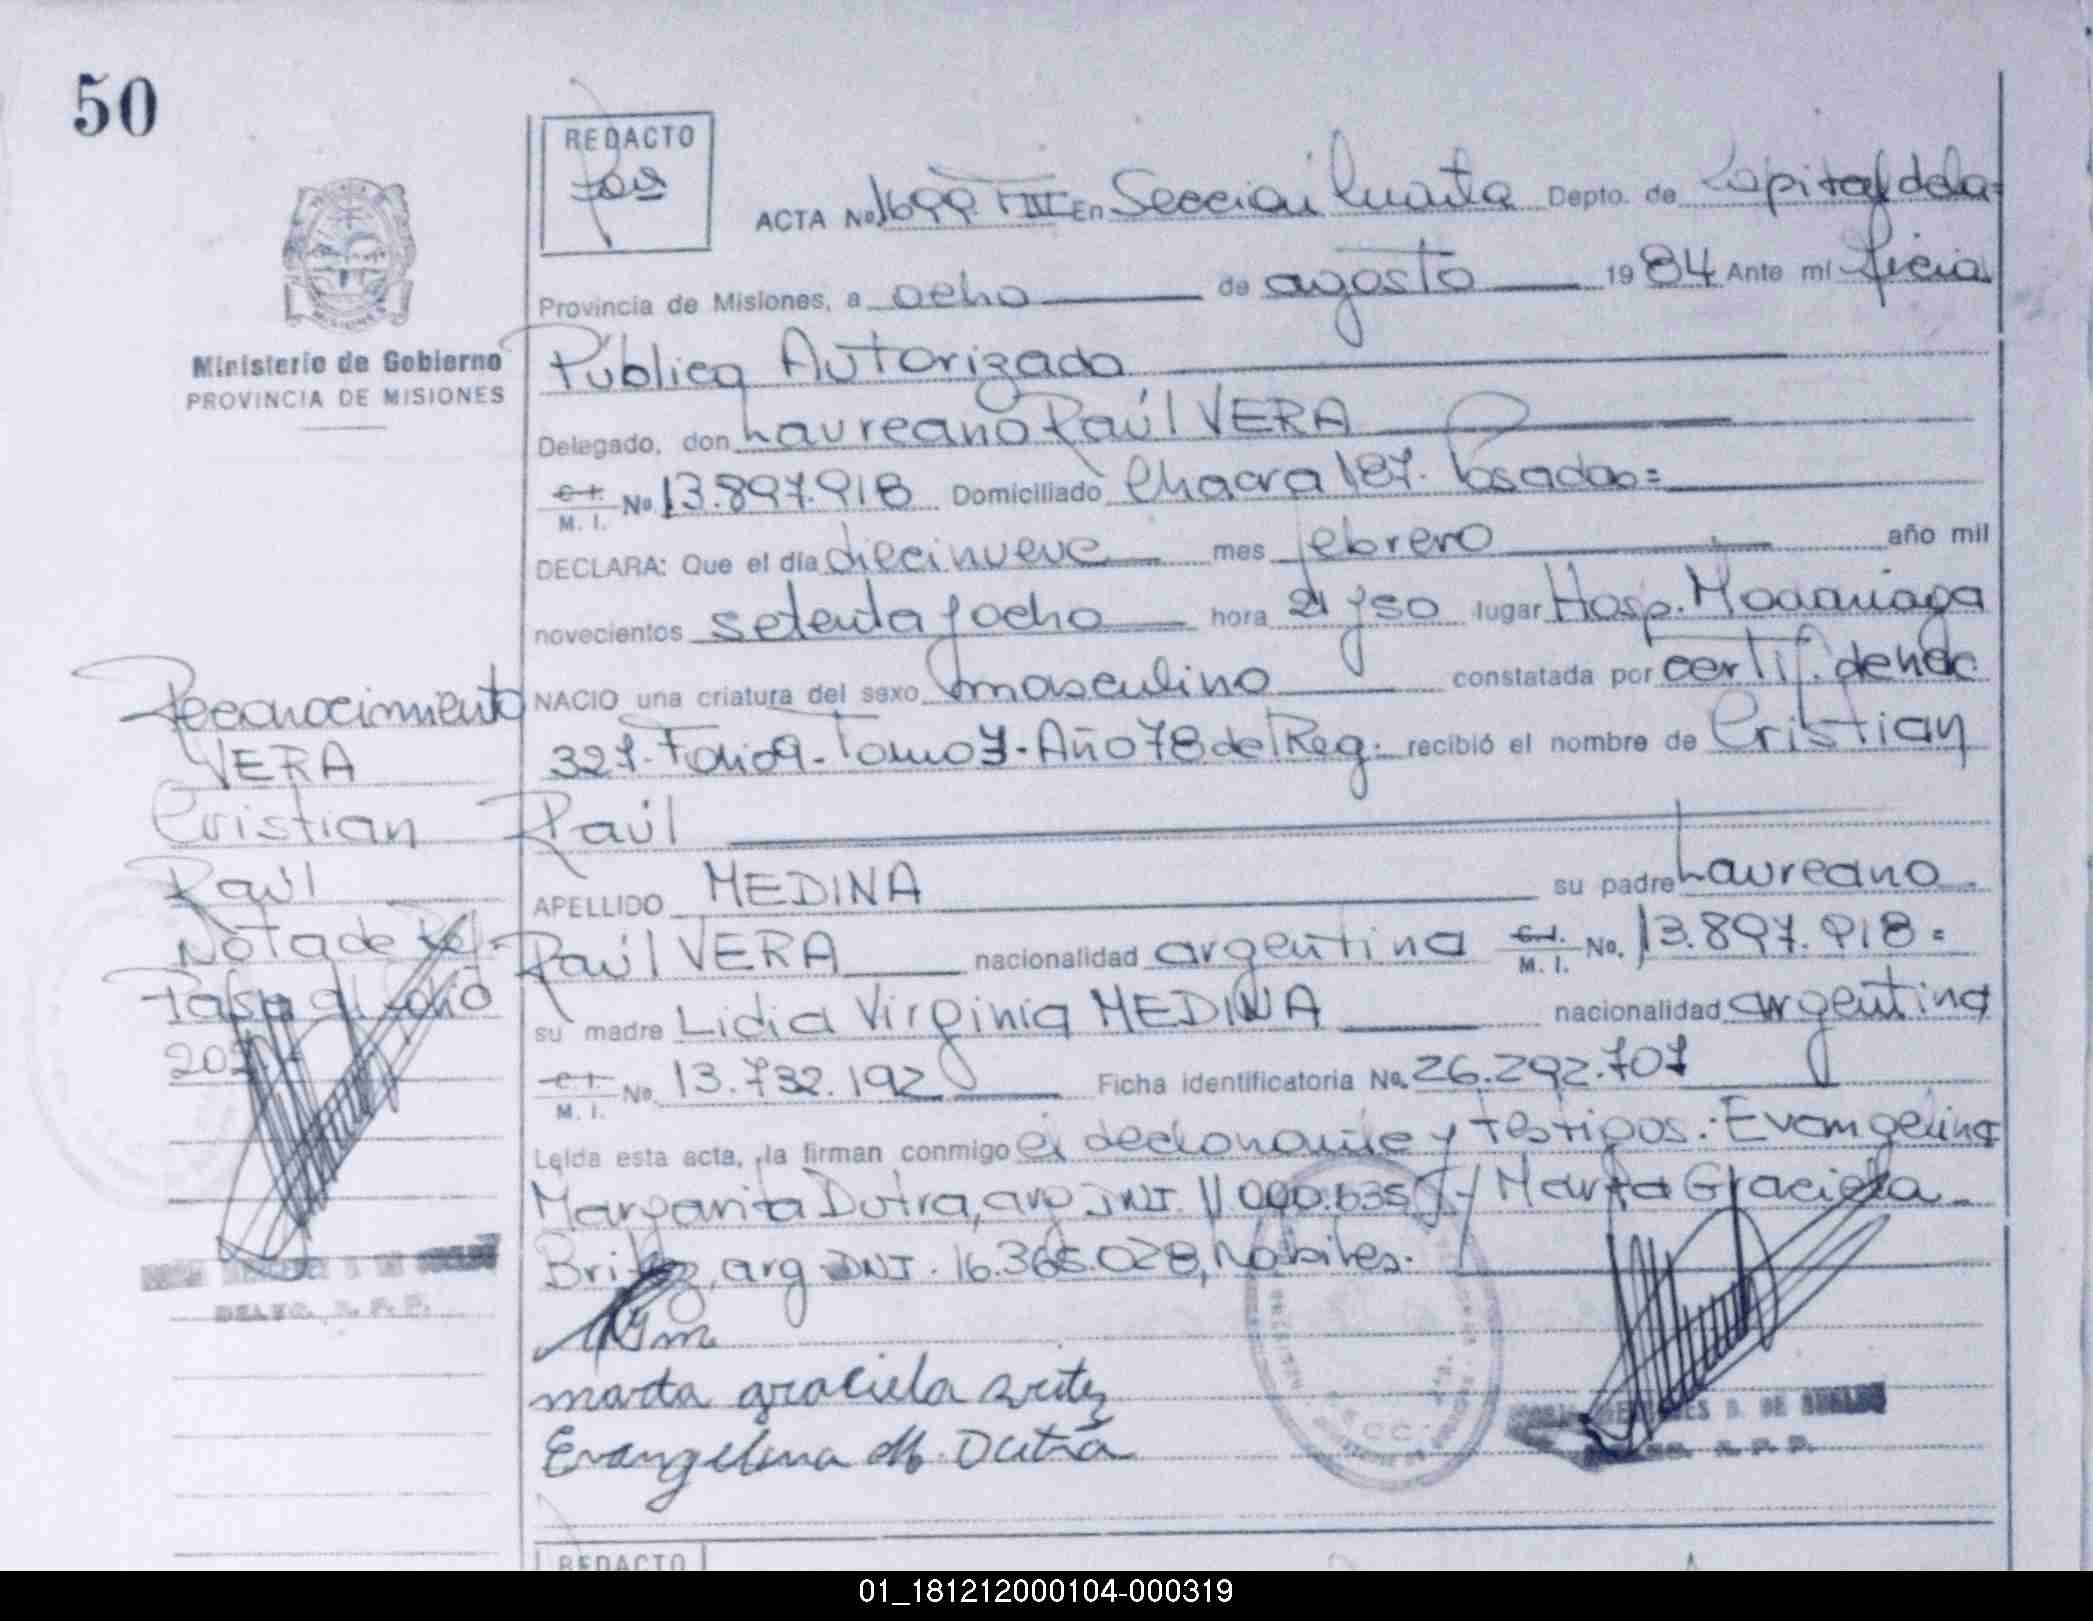 50
REDACTO
ACTA No 1699 TIII En Sección Cuarta Depto. de Capital de la
Provincia de Misiones, a ocho de agosto 1984 Ante mi Oficial
Ministerio de Gobierno
PROVINCIA DE MISIONES
Público Autorizado
Delegado, don Laureano Raúl VERA
C.I. M. I. No 13.897.918 Domiciliado Chacra 187. Posadas=
DECLARA: Que el día diecinueve mes febrero año mil
novecientos setenta y ocho hora 21 y 50 lugar Hosp. Madariaga
NACIO una criatura del sexo masculino constatada por certif. de nac
327. Folio 9. Tomo 7. Año 78 del Reg. recibió el nombre de Cristian
Raúl
APELLIDO MEDINA su padre Laureano
Raúl VERA nacionalidad argentina C.I. M. I. No. 13.897.918=
su madre Lidia Virginia MEDINA nacionalidad argentina
C.I. M. I. No. 13.732.192 Ficha identificatoria No. 26.292.707
Leída esta acta, la firman conmigo el declarante y testigos: Evangelina
Margarita Dutra, arg DNI. y Marta Graciela
Britez, arg DNI. 16.365.028, hábiles.
marta graciela britez
Evangelina M. Dutra
Reconocimiento
VERA
Cristian
Raúl
Nota de Ref.
Pasa al folio
MISIONES
REDACTO
01_181212000104-000319